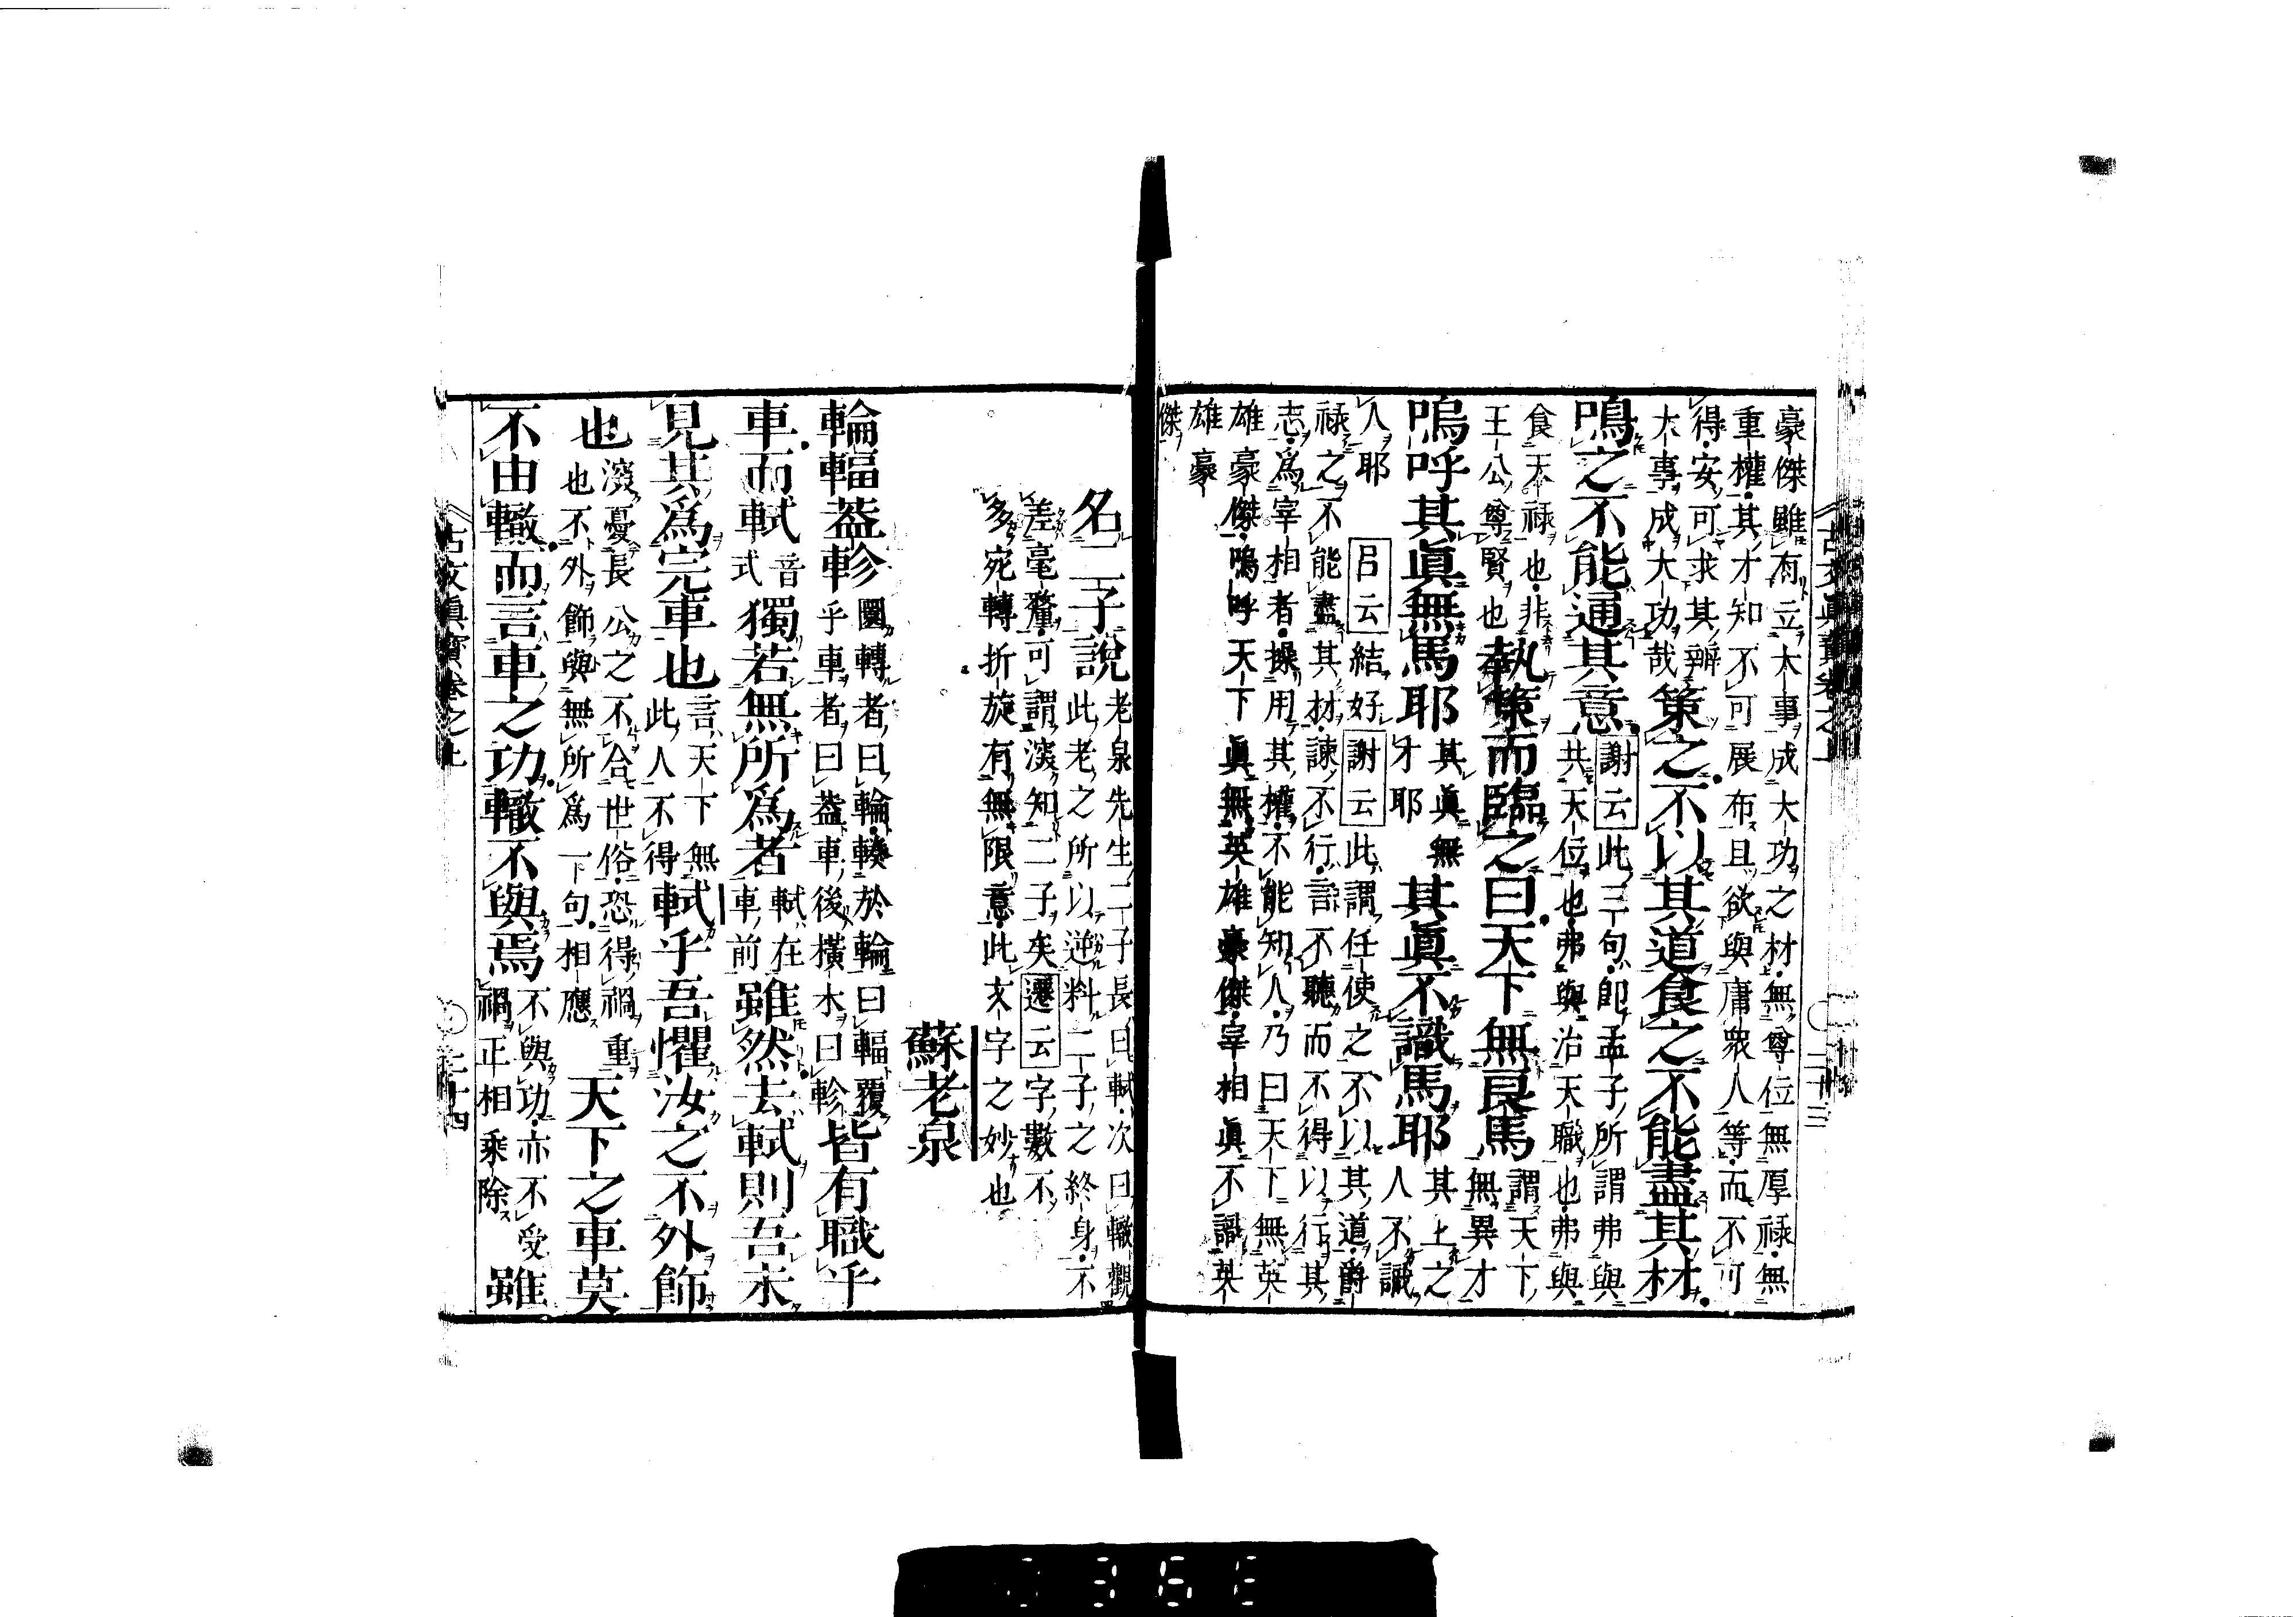 豪傑雖有立大事成大功之材無尊位無厚禄無
重權其才知不可展布且欲與庸衆人等而不可
得安可求其辨
大事成大功哉
策之不以其道食之不能盡其材
鳴之不能通其意
謝云此三句即孟子所謂弗與
共天位也弗與治天職也弗與
食天禄也非
王公尊賢也
執策而臨之曰天下無良馬
謂天下
無異才
嗚呼其眞無馬耶
其眞無
才耶
其眞不識馬耶
其上之
人不識
人耶
呂云結好
謝云此謂任使之不以其道爵
禄之不能盡其材諫不行言不聽而不得以行其
志為宰相者操用其權不能知人乃曰天下無英
雄豪傑嗚呼天下眞無英雄豪傑宰相眞不識英
雄豪
傑
名二子説
老泉先生二子長曰軾次曰轍觀
此老之所以逆料二子之終身不
差毫釐可謂深知二子矣
遷云字數不
多宛轉折旋有無限意此文字之妙也
蘇老泉
輪輻葢軫
圜轉者曰輪輳於輪曰輻覆
乎車者曰葢車後橫木曰軫
皆有職乎
車而軾
音
式
獨若無所爲者
軾在
車前
雖然去軾則吾未
見其爲完車也
言天下無
此人不得
軾乎吾懼汝之不外飾
也
深憂長公之不合世俗恐得禍重
也不外飾與無所爲下句相應
天下之車莫
不由轍而言車之功轍不與焉
不與功亦不受
禍正相乘除
雖
古文眞寳卷之上
二十三
古文眞寳卷之上
二十四